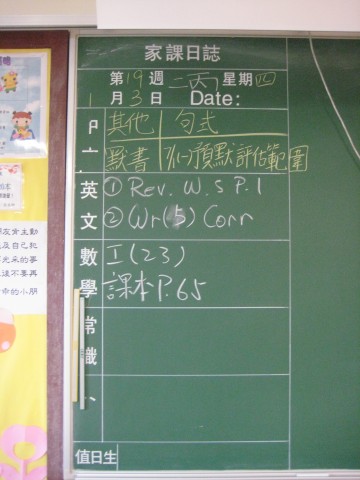 家課日誌
第19週 二丙 星期四
1月3日 Date:
其他 句式
默書 預默評估範圍
英文 ① Rev. W.S P.1
② Wr(5) Corr
數學 I(23)
課本P.65
常識
值日生
友肯主動
及自己
光采的夢
不要再
命的小朋